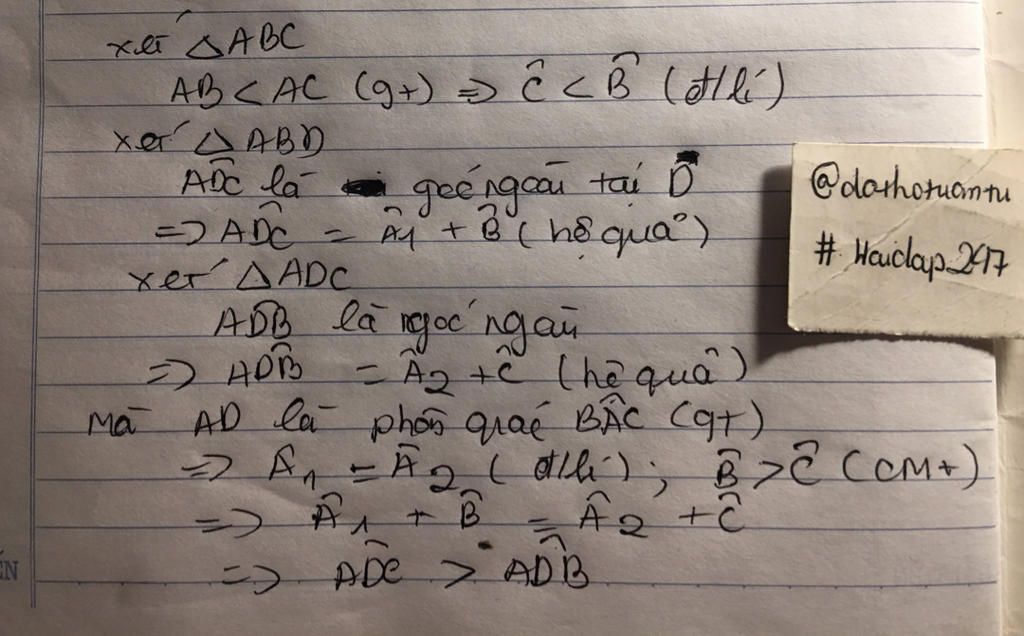 xét △ABC
AB < AC (gt) => Ĉ < B̂ (đ/lí)
xét △ABD
AD̂C là góc ngoài tại D̂
=> AD̂C = Â1 + B̂ (hệ quả)
xét △ADC
AD̂B là ngoc ngoài
=> AD̂B = Â2 + Ĉ (hệ quả)
Mà AD là phân giác BÂC (gt)
=> Â1 = Â2 (đ/lí); B̂ > Ĉ (CMt)
=> Â1 + B̂ = Â2 + Ĉ
=> AD̂C > AD̂B
@dathotuantu
# Haidap_247
ẾN